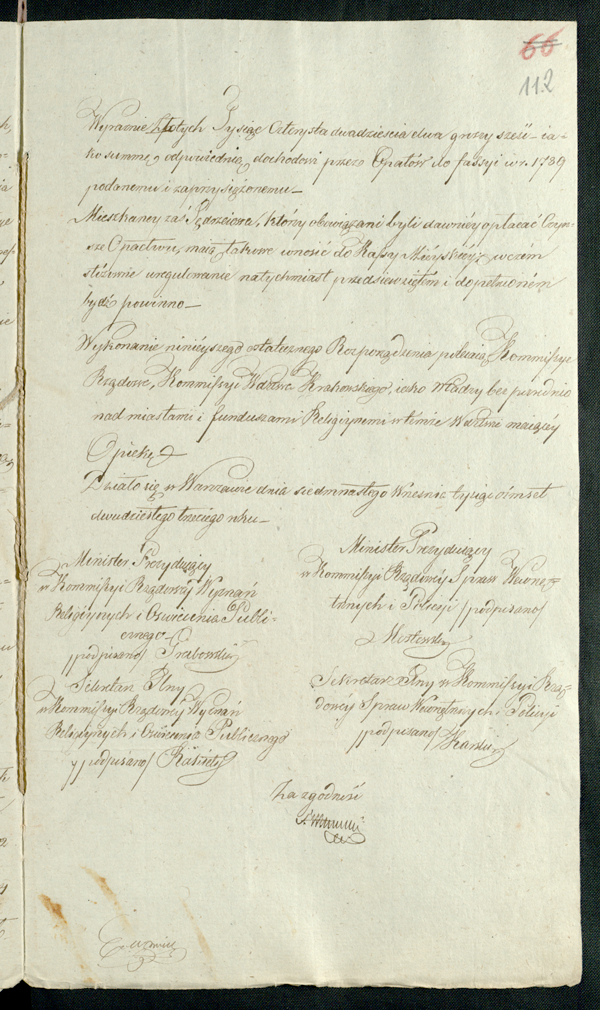 66
112
Wyraźnie Złotych Tysiąc Czterysta dwadzieścia dwa groszy sześć – ia-
ko summę odpowiednią dochodowi przez Opatów do fassyi w r. 1789
podanemu i zaprzysiężonemu –
Mieszkańcy zaś Jędrzeiowa, którzy obowiązani byli dawniéy opłacać Czyn-
sze Opactwu, maią takowe wnosić do Kassy Mieyskiéy, w czém
stósowne uregulowanie natychmiast przedsięwziętém i dopełnioném
bydź powinno –
Wykonanie ninieyszego ostatecznego Rozporządzenia polecaią Kommissye
Rządowe, Kommissyi Wdztwa Krakowskiego, iako Władzy bezpośrednio
nad miastami i funduszami Religiynemi w témże Wdztwie maiącéy
Opiekę
Działo się w Warszawie dnia siedmnastego Września tysiąc ośmset
dwudziestego trzeciego roku –
Minister Prezyduiący
w Kommissyi Rządowéy Wyznań
Religiynych i Oświecenia Publi-
cznego
/podpisano/ Grabowski
Sekretarz Jlny
w Kommissyi Rządowéy Wyznań
Religiynych i Oświecenia Publicznego
/podpisano/
Minister Prezyduiący
w Kommissyi Rządowéy Spraw Wewnę-
trznych i Policyi /podpisano/
Mostowski
Sekretarz Jlny w Kommissyi Rzą-
dowéy Spraw Wewnętrznych i Policyi
/podpisano/ Karski
Za zgodność